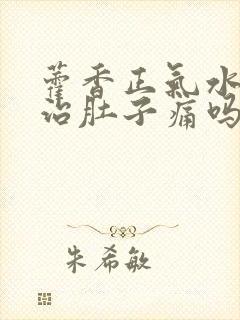 藿香正氣水
治肚子痛吗
朱希敏